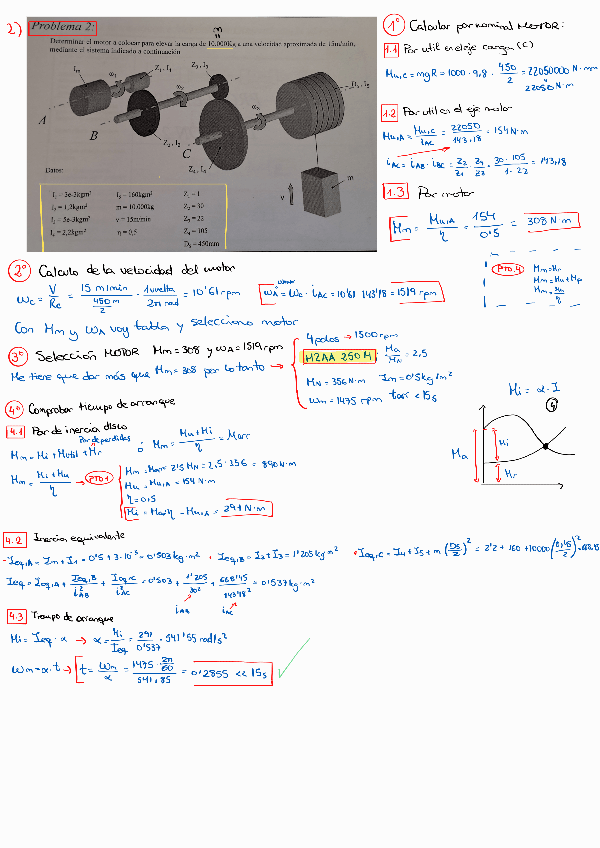 2)
Problema 2:
(m)
Determinar el motor a colocar para elevar la carga de 10.000Kg a una velocidad aproximada de 15m/min,
mediante el sistema indicado a continuación
Im
ω1
Z1, I1
Z3, I3
ω2
ω3
D5, I5
A
B
C
Z2, I2
Z4, I4
v
m
Datos:
I1 = 3e-3kgm² I5 = 160kgm² Z1 = 1
I2 = 1,2kgm² m = 10.000kg Z2 = 30
I3 = 5e-3kgm² v = 15m/min Z3 = 22
I4 = 2,2kgm² η = 0,5 Z4 = 105
D5 = 450mm
1º Calcular par nominal MOTOR:
1.1 Par util en eje carga (C)
Mu,c = mgR = 1000 · 9,8 · 450/2 = 22050000 N·mm
22050 N·m
1.2 Par util en el eje motor
Mu,A = Mu,c/iAC = 22050/143,18 = 154 N·m
iAC = iAB · iBC = Z2/Z1 · Z4/Z3 = 30·105/1·22 = 143,18
1.3 Par motor
Mm = Mu,A/η = 154/0'5 = 308 N·m
Mm = Mr
Mm = Mu + Mp
Mm = Mu/η
2º Calculo de la velocidad del motor
ωc = V/Rc = 15 m/min / 450 m/2 · 1 vuelta/2π rad = 10'61 rpm
ωA = ωc · iAC = 10'61 · 143'18 = 1519 rpm
Con Mm y ωA voy tabla y selecciono motor
3º Selección MOTOR Mm = 308 y ωA = 1519 rpm
Me tiene que dar más que Mm = 308 por lo tanto →
4 polos → 1500 rpm
M2AA 250 M Ma/MN = 2,5
MN = 356 N·m Im = 0'5 kg/m²
ωm = 1475 rpm tarr < 15s
4º Comprobar tiempo de arranque
4.1 Par de inercia disco
Par de perdidas
Mm = Mi + Mutil + Mr ó Mm = Mu + Mi/η = Marr
Mm = Mi + Mu/η → PTO.1
Mm = Marr = 2'5 MN = 2,5 · 356 = 890 N·m
Mu = Mu,A = 154 N·m
η = 0'5
Mi = Ma·η - Mu,A = 291 N·m
Mi = α · I
4
Ma
Mi
Mr
4.2 Inercia equivalente
· Ieq,A = Im + I1 = 0'5 + 3·10⁻³ = 0'503 kg·m² · Ieq,B = I2 + I3 = 1'205 kg·m² · Ieq,C = I4 + I5 + m (D5/2)² = 2'2 + 160 + 10000 (0,45/2)² = 668,45
Ieq = Ieq,A + Ieq,B/i²AB + Ieq,C/i²AC = 0'503 + 1'205/30² + 668'45/143'18² = 0'537 kg·m²
iAB
iAC
4.3 Tiempo de arranque
Mi = Ieq · α → α = Mi/Ieq = 291/0'537 = 541'85 rad/s²
ωm = α · t → t = ωm/α = 1475 · 2π/60 / 541,85 = 0'2855 << 15s